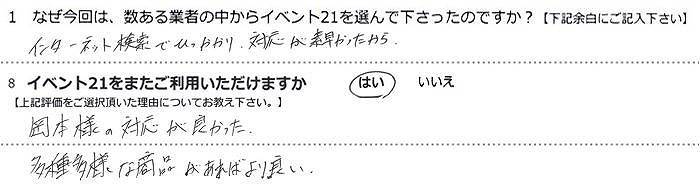 1 なぜ今回は、数ある業者の中からイベント21を選んで下さったのですか？【下記余白にご記入下さい】
インターネット検索でひっかかり、対応が素早かったから.
8 イベント21をまたご利用いただけますか はい いいえ
【上記評価をご選択頂いた理由についてお教え下さい。】
岡本様の対応が良かった.
多種多様な商品があればより良い.